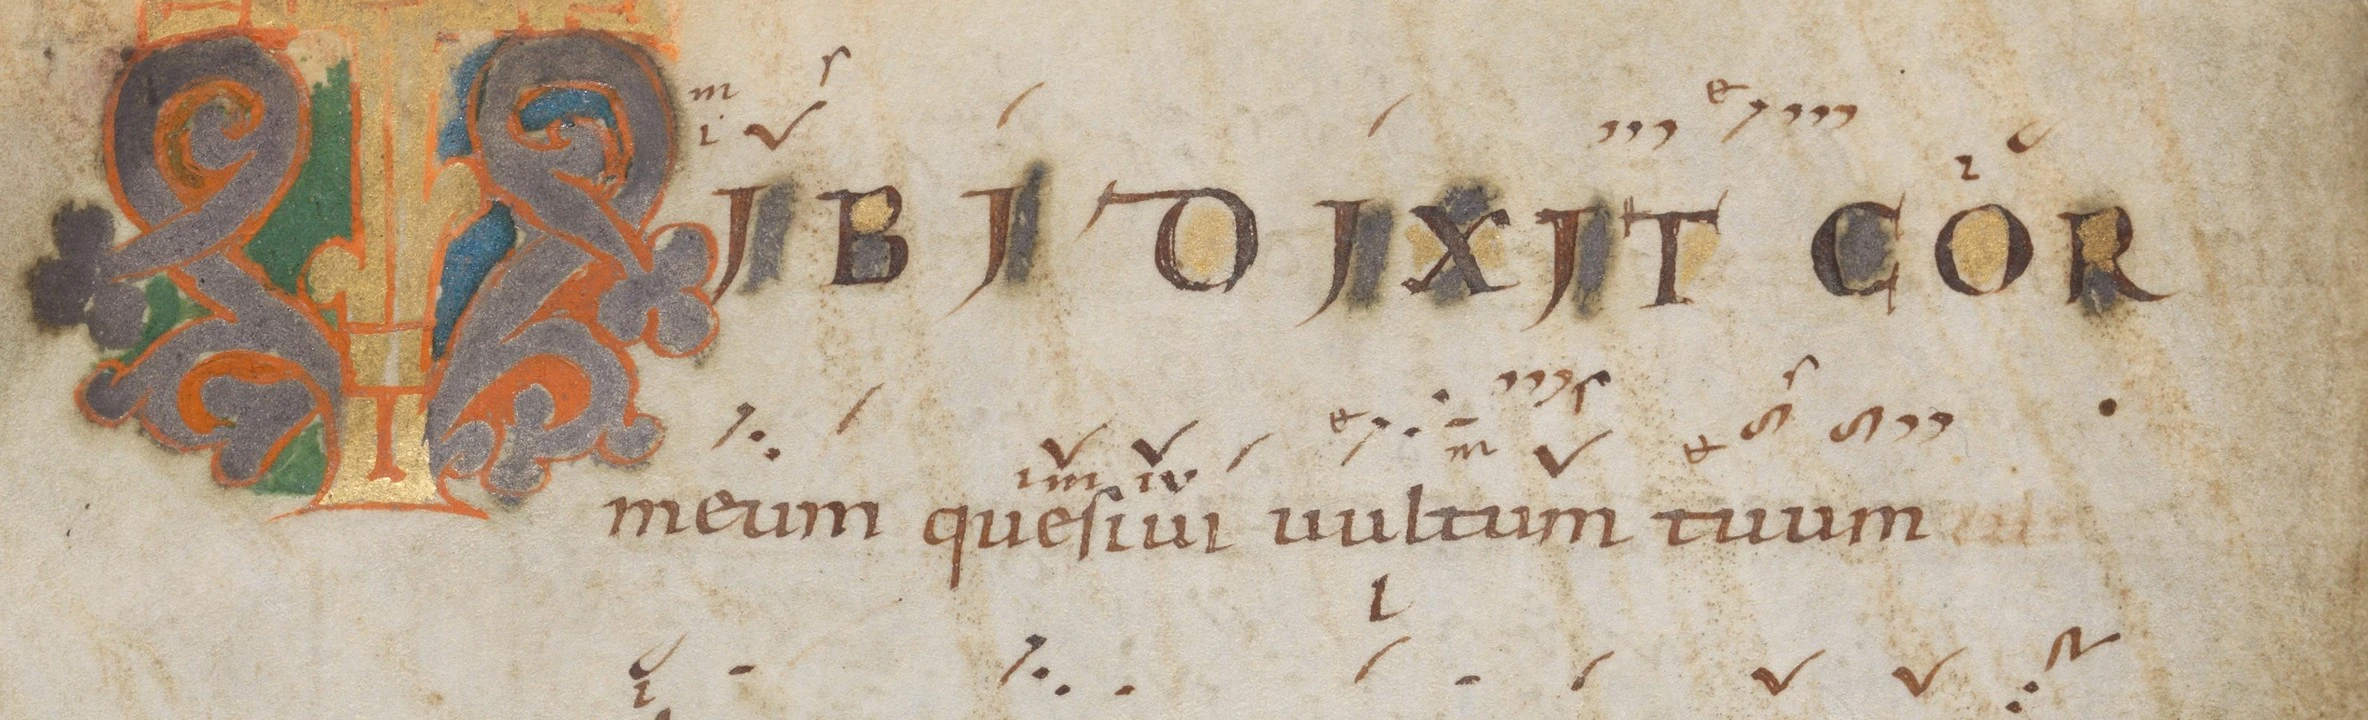 TIBI DIXIT COR
meum quesiui uultum tuum